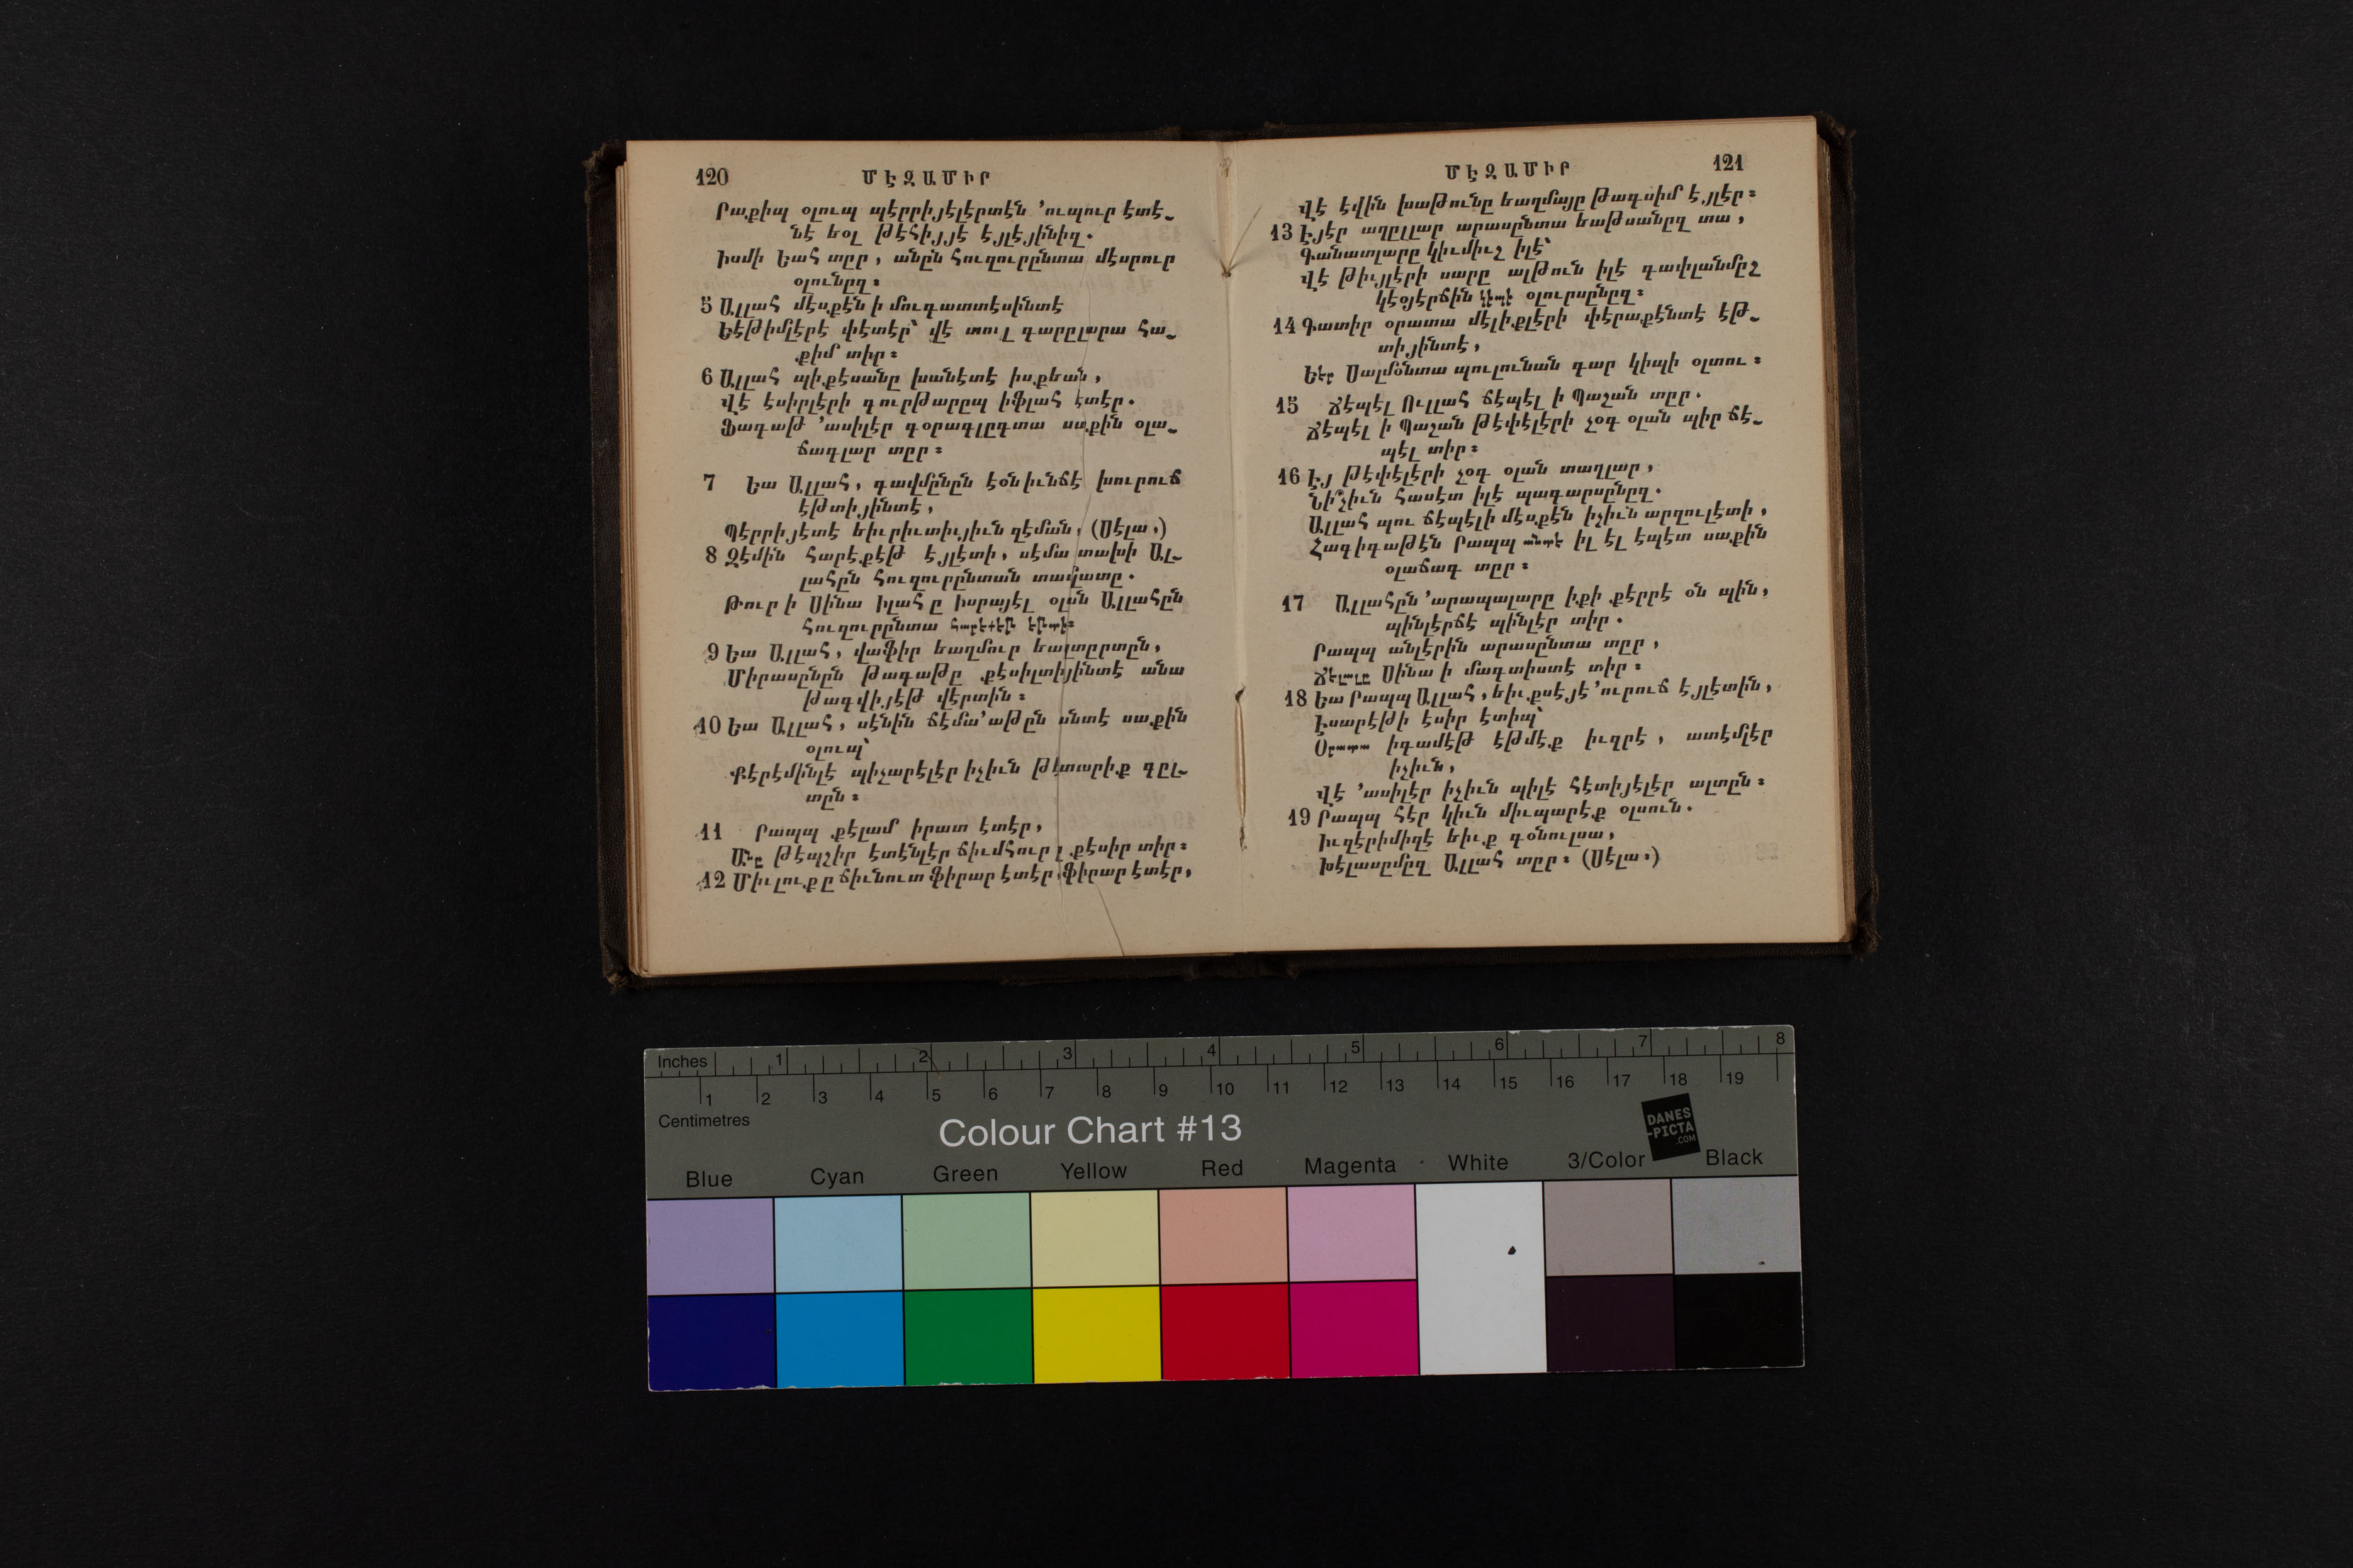 120 ՄԷԶԱՄԻՐ
Րաքիպ օլուպ պէրրիյէլէրտէն ՚ուպուր էտէ֊
նէ եօլ թէհիյյէ էյլէյինիզ.
Իսմի Եահ տըր, անըն հուզուրընտա մէսրուր
օլունըզ։
5 Ալլահ մէսքէն ի մուգատտէսինտէ
Եէթիմլէրէ փէտէր՝ վէ տուլ գարըլարա հա֊
քիմ տիր։
6 Ալլահ պիքէսանը խանէտէ իսքեան,
Վէ էսիրլէրի գուրթարըպ իֆլահ էտէր.
Ֆագաթ ՚ասիլէր գօրագլըգտա սաքին օլա֊
ճագլար տըր։
7 Եա Ալլահ, գավմընըն էօնիւնճէ խուրուճ
էթտիյինտէ,
Պէրրիյէտէ եիւրիւտիւյիւն զէման, (Սէլա,)
8 Զէմին հարէքէթ էյլէտի, սէմա տախի Ալ֊
լահըն հուզուրընտան տամլատը.
Թուր ի Սինա Իլահ ը Իսրայէլ օլան Ալլահըն
հուզուրընտա հարէքէթ էյլէտի։
9 Եա Ալլահ, վաֆիր եաղմուր եաղտըրտըն,
Միրասընըն թագաթը քէսիլտիյինտէ անա
թագվիյէթ վէրտին։
10 Եա Ալլահ, սէնին ճէմա՚աթըն անտէ սաքին
օլուպ՝
Քէրէմինլէ պիչարէլէր իչիւն թէտարիք գըլ֊
տըն։
11 Րապպ քէլամ իրատ էտէր,
Անը թէպշիր էտէնլէր ճիւմհուր ը քէսիր տիր։
12 Միւլուք ը ճիւնուտ ֆիրար էտէր, ֆիրար էտէր,
ՄԷԶԱՄԻՐ 121
Վէ էվին խաթունը եաղմայը թագսիմ էյլէր։
13 Էյէր աղըլլար արասընտա եաթսանըզ տա,
Գանատլարը կիւմիւշ իլէ՝
Վէ թիւյլէրի սարը ալթուն իլէ գափլանմըշ
կէօյէրճին կիպի օլուրսընըզ։
14 Գատիր օրատա մէլիքլէրի փէրաքէնտէ էթ֊
տիյինտէ,
Եէր Սալմօնտա պուլունան գար կիպի օլտու։
15 Ճէպէլ Ուլլահ ճէպէլ ի Պաշան տըր.
Ճէպէլ ի Պաշան թէփէլէրի չօգ օլան պիր ճէ֊
պէլ տիր։
16 Էյ թէփէլէրի չօգ օլան տաղլար,
Նի՞չիւն հասէտ իլէ պագարսընըզ.
Ալլահ պու ճէպէլի մէսքէն իչիւն արզուլէտի,
Հագիգաթէն Րապպ անտէ իլ էլ էպէտ սաքին
օլաճագ տըր։
17 Ալլահըն ՚արապալարը իքի քէրրէ օն պին,
պինլէրճէ պինլէր տիր.
Րապպ անլէրին արասընտա տըր,
Ճէլալը Սինա ի մագտիստէ տիր։
18 Եա Րապպ Ալլահ, եիւքսէյէ ՚ուրուճ էյլէտին,
Էսարէթի էսիր էտիպ՝
Օրատա իգամէթ էթմէք իւզրէ, ատէմլէր
իչիւն,
Վէ ՚ասիլէր իչիւն պիլէ հէտիյէլէր ալտըն։
19 Րապպ հէր կիւն միւպարէք օլսուն.
Իւզէրիմիզէ եիւք գօնուլսա,
Խէլասըմըզ Ալլահ տըր։ (Սէլա։)
Inches 1 2 3 4 5 6 7 8
1 2 3 4 5 6 7 8 9 10 11 12 13 14 15 16 17 18 19
Centimetres
Colour Chart #13
DANES
-PICTA
.COM
Blue Cyan Green Yellow Red Magenta White 3/Color Black